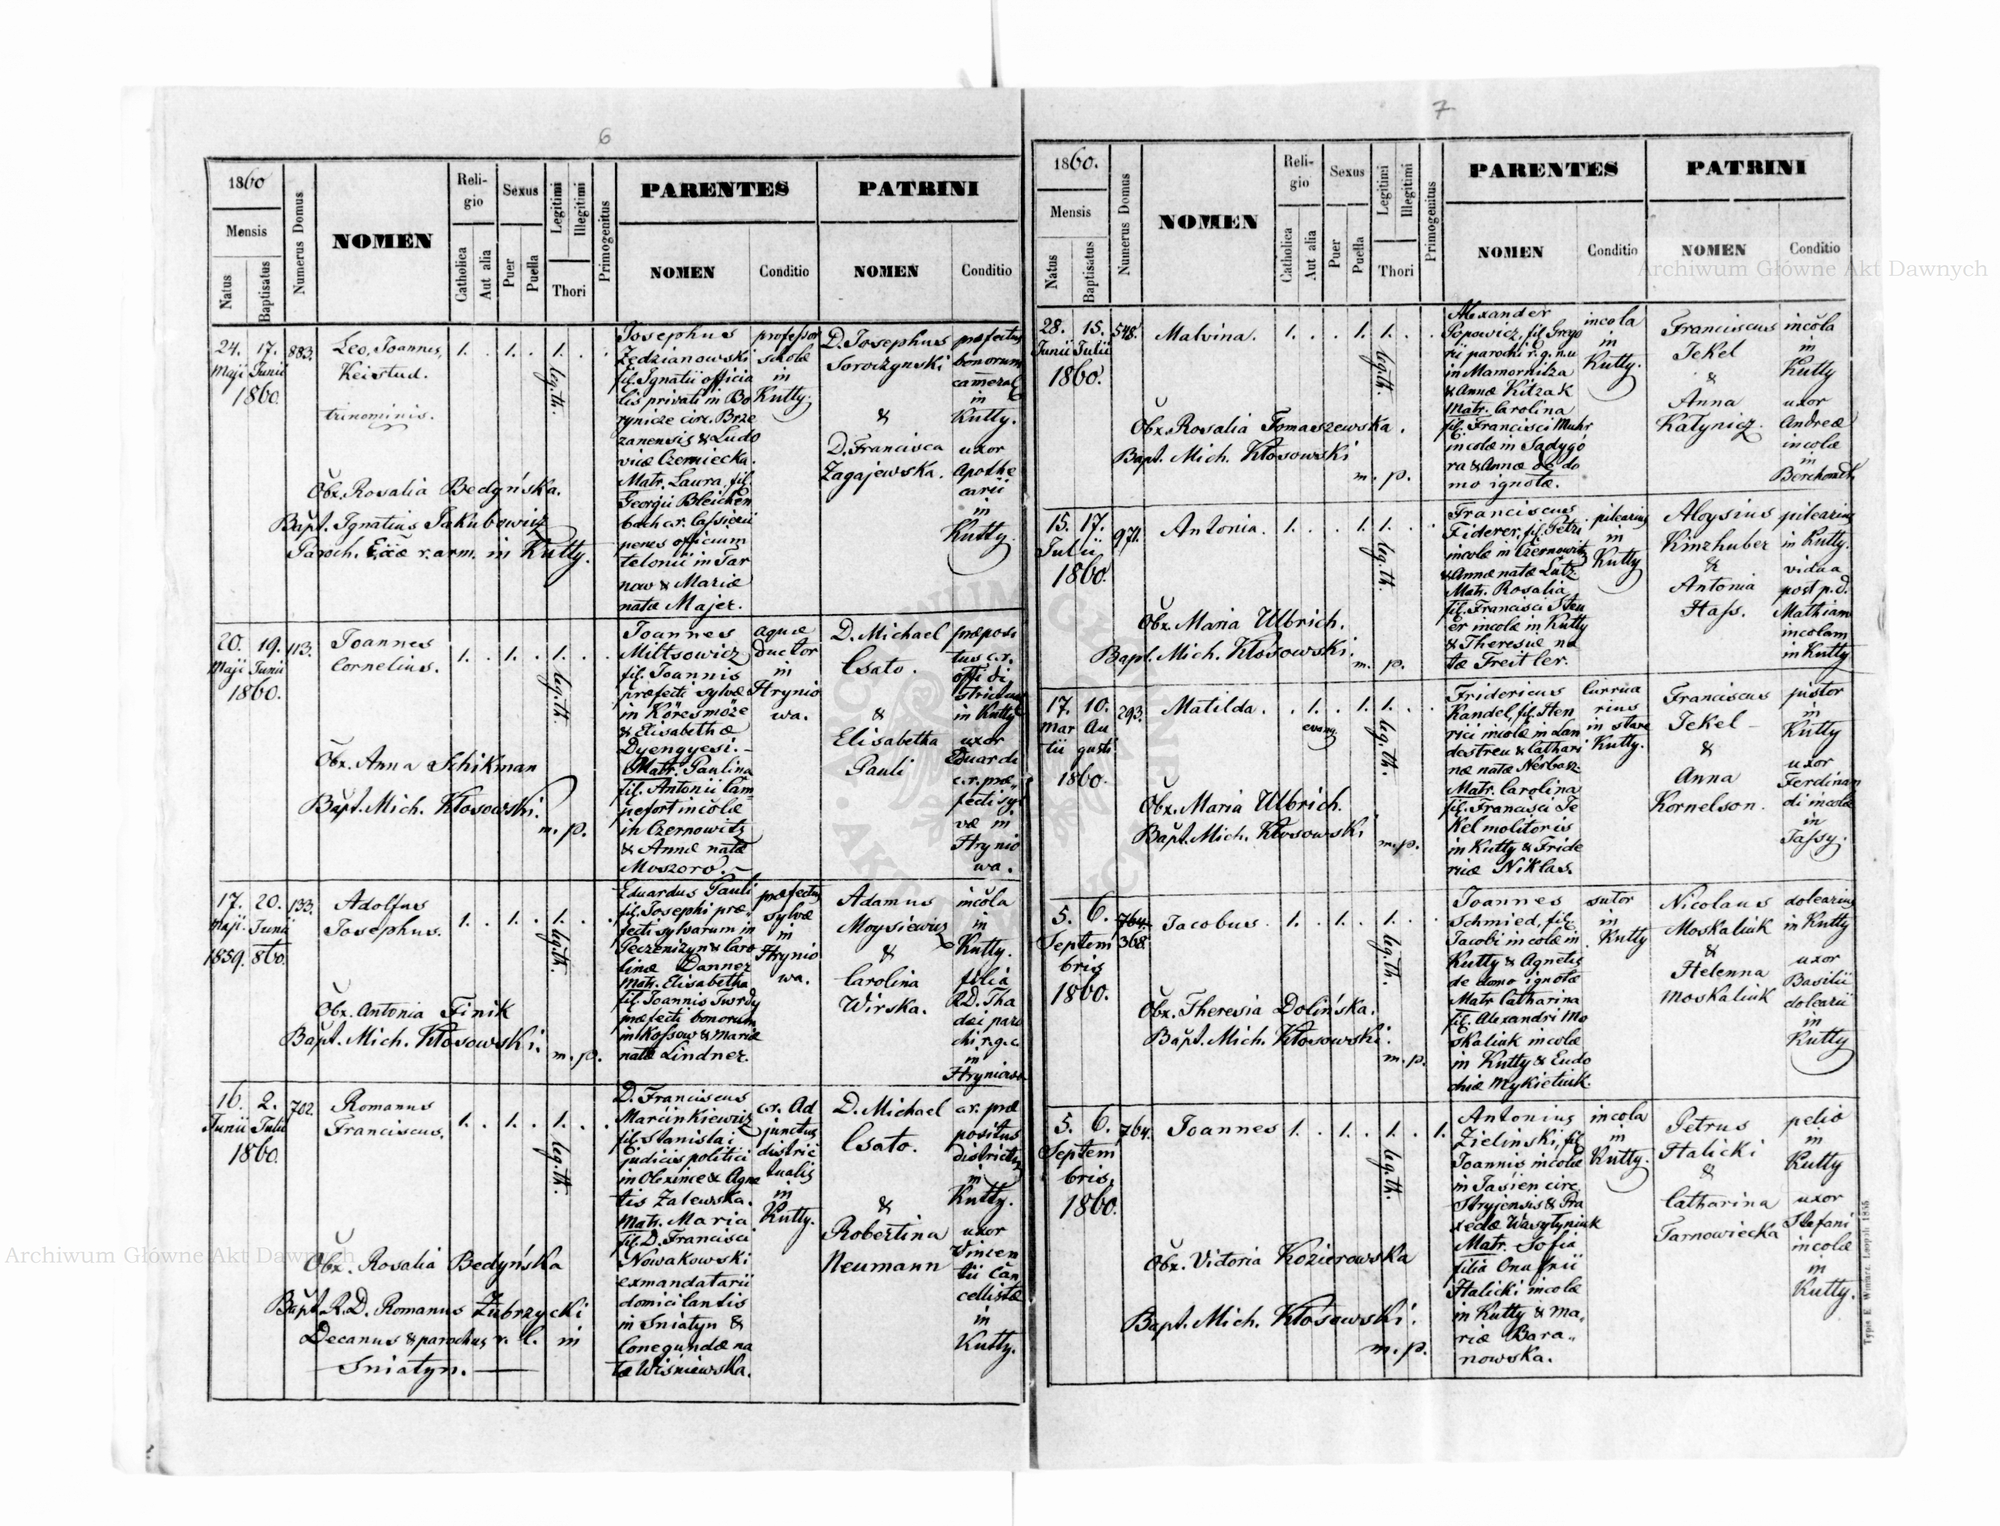 6
1860
Mensis
Natus
Baptisatus
Numerus Domus
NOMEN
Religio
Catholica
Aut alia
Sexus
Puer
Puella
Legitimi
Illegitimi
Thori
Primogenitus
PARENTES
NOMEN
Conditio
PATRINI
NOMEN
Conditio
24. 17.
Maji Junii
1860.
883.
Leo, Joannes,
Keistud.
trinominis.
1. . 1. . 1. . .
leg. th.
Obx. Rosalia Bedyńska.
Bapt. Ignatius Jakubowicz
Paroch. r. arm. in Kutty.
Josephus
Zedzianowski
fil. Ignatii officia
lis privati in Bo
rynicze circ. Brze
zanensis & Ludo
vicæ Czerniecka.
Matr. Laura, fil.
Georgii Bleichen
bach c.r. Cassierii
penes officium
telonii in Tar
now & Mariæ
natæ Majer.
professor
scholæ
in
Kutty.
D. Josephus
Soroczynski
&
D. Francisca
Zagajewska.
præfectus
bonorum
cameral
in
Kutty.
uxor
Apothe
carii
in
Kutty.
20. 19.
Maji Junii
1860.
113.
Joannes
Cornelius.
1. . 1. . 1. . .
leg. th.
Obx. Anna Schikman
Bapt. Mich. Kłosowski.
m. p.
Joannes
Miltsowicz
fil. Joannis
præfecti sylvæ
in Körösmöze
& Elisabethæ
Dyengyesi. –
Matr. Paulina
fil. Antonii Cam
pefort incolæ
in Czernowitz
& Annæ natæ
Moszoro. –
aquæ
ductor
in
Hrynio
wa.
D. Michael
Csato.
&
Elisabetha
Pauli
præposi
tus c.r.
offi di
strictual
in Kutty
uxor
Eduardi
c.r. præ
fecti syl
væ in
Hrynio
wa.
17. 20.
Maji. Junii
1859. 860.
133.
Adolfus
Josephus.
1. . 1. . 1. . .
leg. th.
Obx. Antonia Finik
Bapt. Mich. Kłosowski.
m. p.
Eduardus Pauli
fil. Josephi præ
fecti sylvarum in
Peczeniżyn & Caro
linæ Danner
Matr. Elisabetha
fil. Joannis Twrdy
præfecti bonorum
in Kossow & Mariæ
natæ Lindner.
præfectus
sylvæ
in
Hrynio
wa.
Adamus
Moysiewicz
&
Carolina
Wirska.
incola
in
Kutty.
filia
R.D. Tha
dei paro
chi r.g.c.
in
Hryniowa
16. 2.
Junii Julii
1860.
702.
Romanus
Franciscus.
1. . 1. . 1. . .
leg. th.
Obx. Rosalia Bedyńska
Bapt. R.D. Romanus Zubrzycki
Decanus & parochus r. l. in
Sniatyn.
D. Franciscus
Marcinkiewicz
fil. Stanislai
judicis politici
in Olexince & Agne
tis Zalewska.
Matr. Maria
fil. D. Francisci
Nowakowski
exmandatarii
domicilantis
in Sniatyn &
Conegundæ na
tæ Wiśniewska.
c.r. Ad
junctus
districtualis
in
Kutty.
D. Michael
Csato.
&
Robertina
Neumann
c.r. præ
positus
districtus
in
Kutty.
uxor
Vincen
tii Can
cellistæ
in
Kutty.
7
1860.
Mensis
Natus
Baptisatus
Numerus Domus
NOMEN
Religio
Catholica
Aut alia
Sexus
Puer
Puella
Legitimi
Illegitimi
Thori
Primogenitus
PARENTES
NOMEN
Conditio
PATRINI
NOMEN
Conditio
28. 15.
Junii Julii
1860.
548.
Malvina.
1. . . 1. 1. . .
leg. th.
Obx. Rosalia Tomaszewska.
Bapt. Mich. Kłosowski
m. p.
Alexander
Popowicz, fil. Grego
rii parochi r.g.n.u
in Mamornitza
& Annæ Kitzak
Matr. Carolina
fil. Francisci Muhr
incolæ in Sadygó
ra & Annæ de do
mo ignotæ.
incola
in
Kutty.
Franciscus
Jekel
&
Anna
Katynicz.
incola
in
Kutty
uxor
Andreæ
incolæ
in
Berehomet.
15. 17.
Julii
1860.
971.
Antonia.
1. . . 1. 1. . .
leg. th.
Obx. Maria Ulbrich.
Bapt. Mich. Kłosowski.
m. p.
Franciscus
Fiderer, fil. Petri
incolæ in Czernowitz
& Annæ natæ Lutz
Matr. Rosalia
fil. Francisci Sten
er incolæ in Kutty
& Theresiæ na
tæ Freitler.
pilearius
in
Kutty
Aloysius
Kinzhuber
&
Antonia
Hass.
pilearius
in Kutty.
vidua
post p.d.
Mathiam
incolam
in Kutty
17. 10.
Martii Augusti
1860.
293.
Matilda.
. 1. . 1. 1. . .
evang.
leg. th.
Obx. Maria Ulbrich.
Bapt. Mich. Kłosowski
m. p.
Fridericus
Kandel, fil. Hen
rici incolæ in Lan
destreu & Cathari
næ natæ Nerbas.
Matr. Carolina
fil. Francisci Je
kel molitoris
in Kutty & Fride
ricæ Niklas.
Currua
rius
in stare
Kutty.
Franciscus
Jekel –
&
Anna
Kornelson.
pistor
in
Kutty
uxor
Ferdinan
di incolæ
in
Jassy.
5. 6.
Septem
bris
1860.
764.
368.
Jacobus
1. . 1. . 1. . .
leg. th.
Obx. Theresia Dolińska.
Bapt. Mich. Kłosowski.
m. p.
Joannes
Schmied, fil.
Jacobi incolæ in
Kutty & Agnetis
de domo ignotæ
Matr. Catharina
fil. Alexandri Mo
skaliuk incolæ
in Kutty & Eudo
chiæ Mykietiuk.
sutor
in
Kutty
Nicolaus
Moskaliuk
&
Helenna
Moskaliuk
dolearius
in Kutty
uxor
Basilii
dolearii
in
Kutty
5. 6.
Septem
bris.
1860.
764.
Joannes
1. . 1. . 1. . 1.
leg. th.
Obx. Victoria Kozierowska
Bapt. Mich. Kłosowski.
m. p.
Antonius
Zielinski, fil
Joannis incolæ
in Jasien circ.
Stryjensis & Pra
xedæ Wasylyniuk
Matr. Sofia
filia Onufrii
Halicki incolæ
in Kutty & Ma
riæ Bara
nowska.
incola
in
Kutty.
Petrus
Halicki
&
Catharina
Tarnowiecka
pelio
in
Kutty
uxor
Stefani
incolæ
in
Kutty.
Typis E. Winiarz. Leopoli 1855
Archiwum Główne Akt Dawnych
Archiwum Główne Akt Dawnych